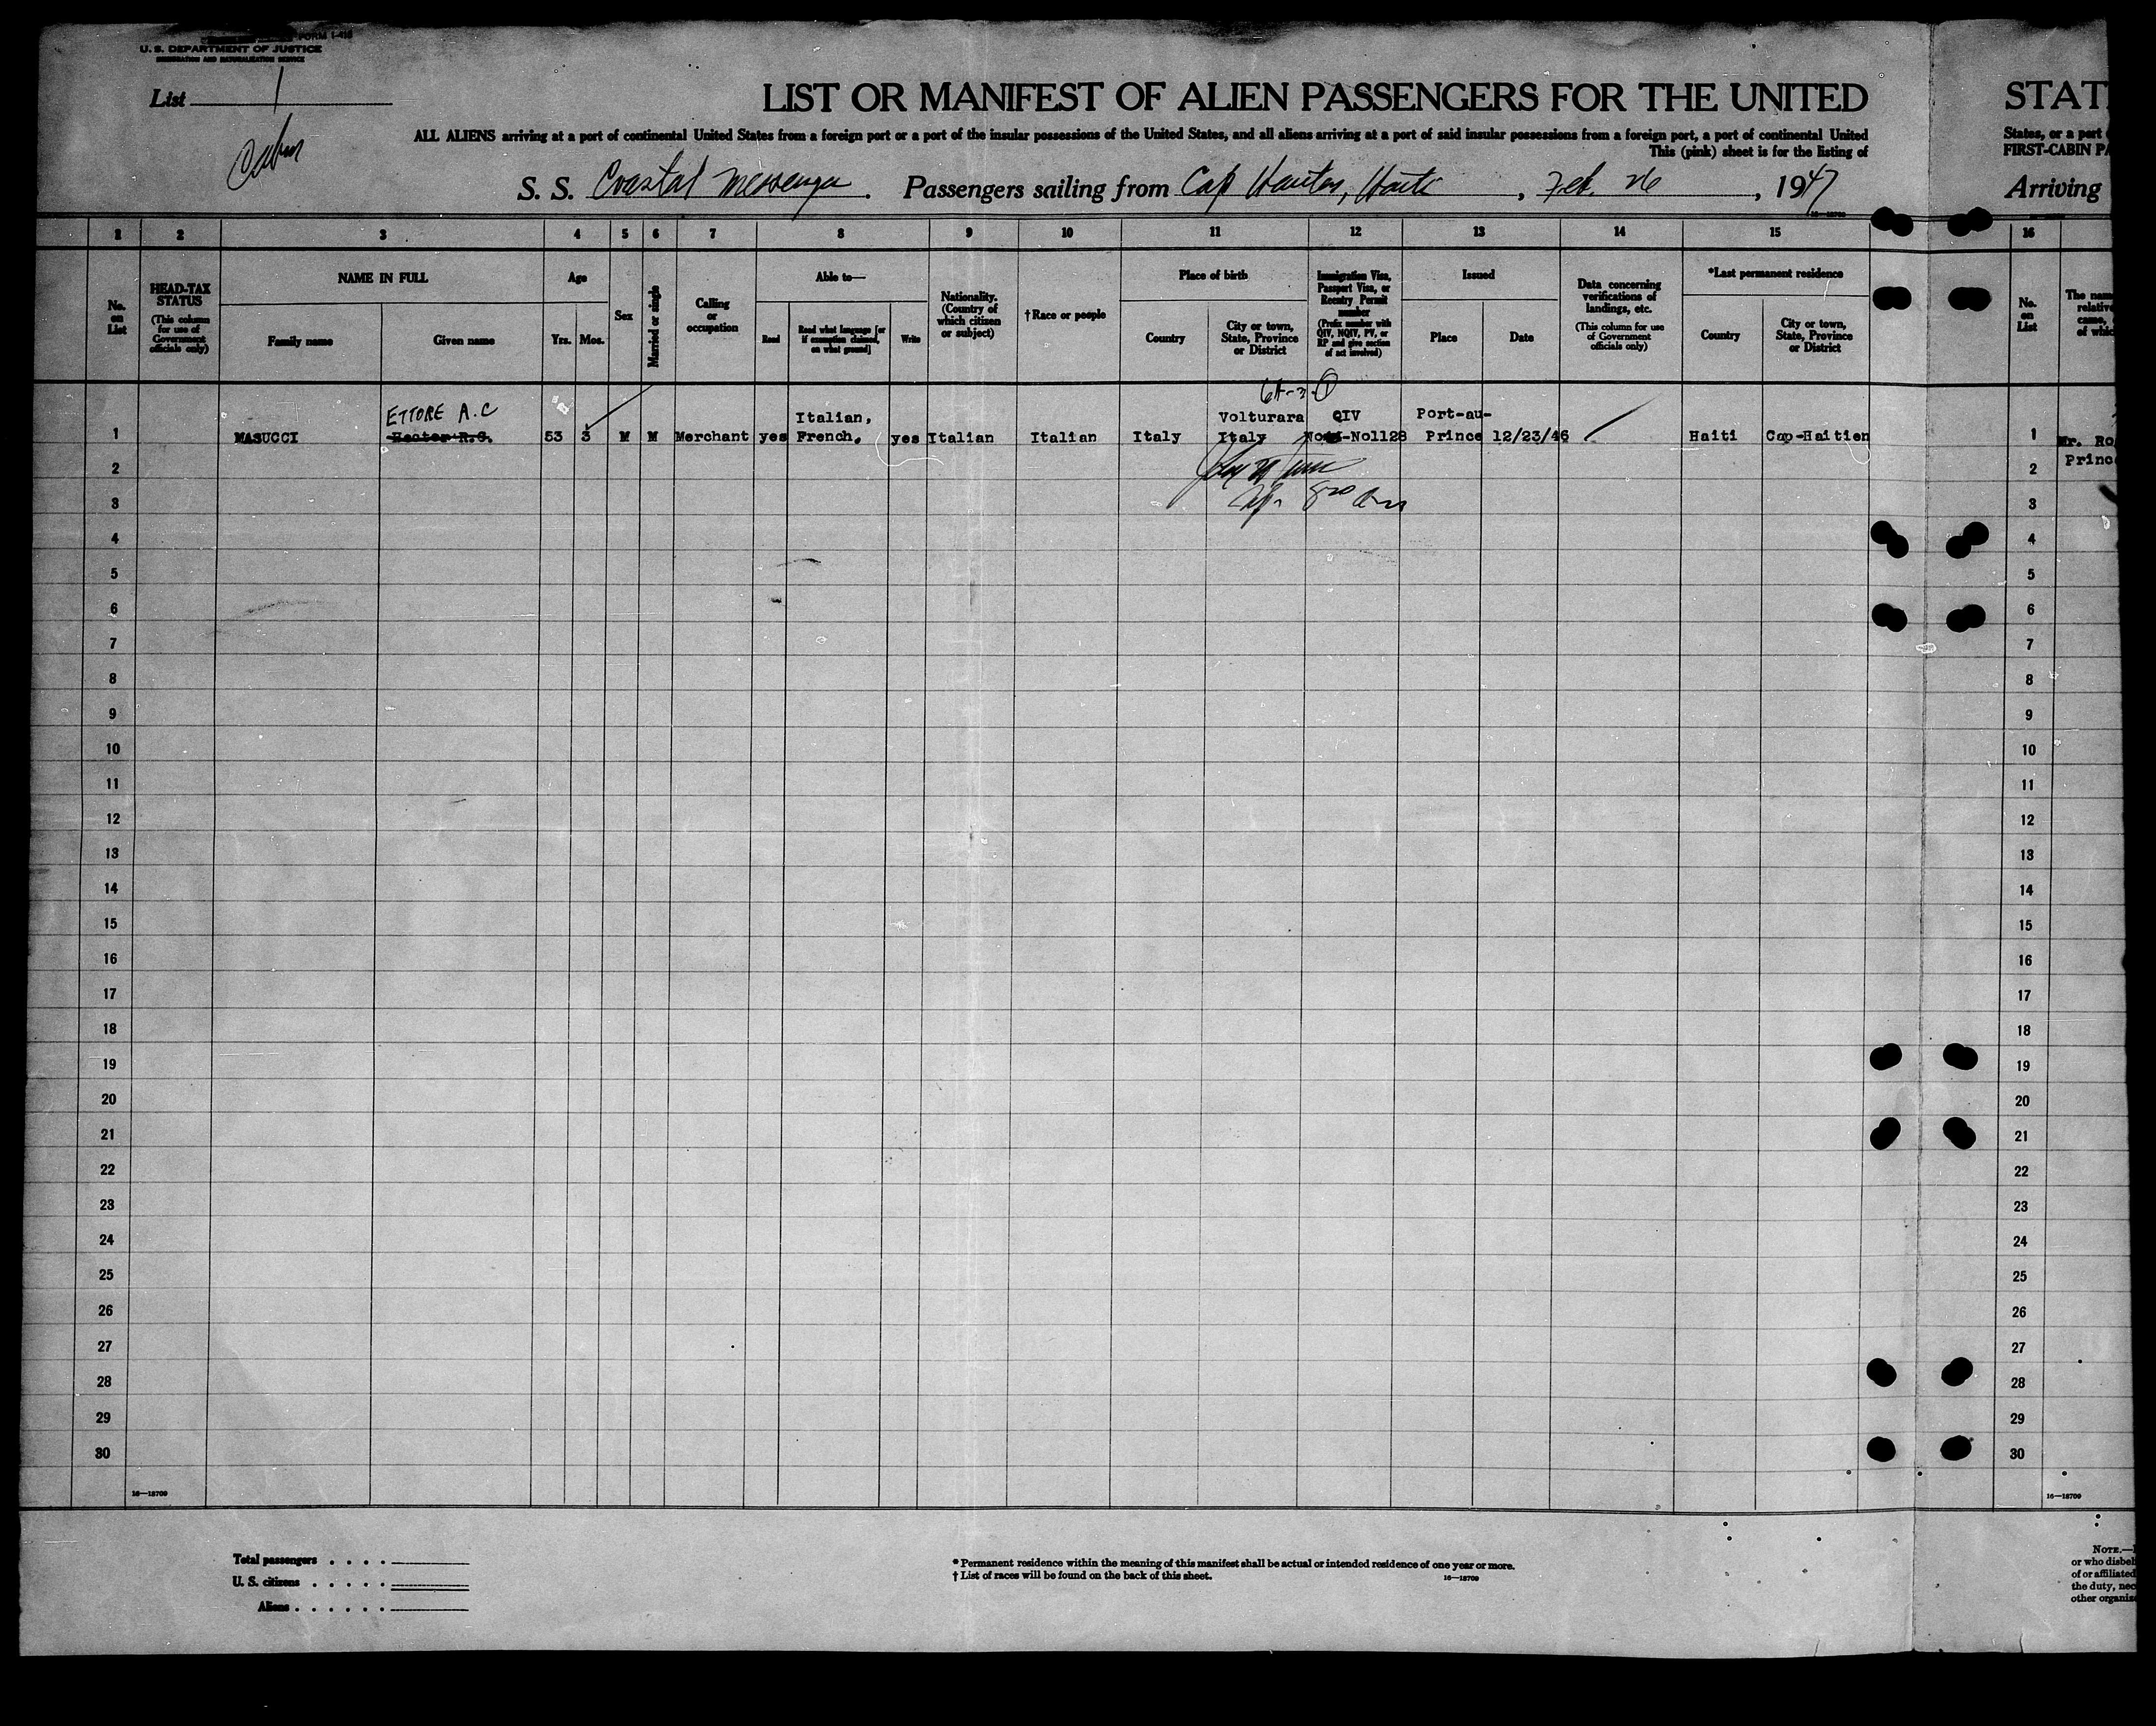 FORM I-418
U. S. DEPARTMENT OF JUSTICE
IMMIGRATION AND NATURALIZATION SERVICE
List 1
LIST OR MANIFEST OF ALIEN PASSENGERS FOR THE UNITED
STAT
ALL ALIENS arriving at a port of continental United States from a foreign port or a port of the insular possessions of the United States, and all aliens arriving at a port of said insular possessions from a foreign port, a port of continental United
States, or a port
This (pink) sheet is for the listing of
FIRST-CABIN PA
S. S. Coastal Messenger. Passengers sailing from Cap Haitien, Haiti, Feb. 26, 1947
Arriving
16—18709
1 2 3 4 5 6 7 8 9 10 11 12 13 14 15 16
No. on List
HEAD-TAX STATUS
(This column for use of Government officials only)
NAME IN FULL
Family name
Given name
Age
Yrs.
Mos.
Sex
Married or single
Calling or occupation
Able to—
Read
Read what language [or if exemption claimed, on what ground]
Write
Nationality. (Country of which citizen or subject)
†Race or people
Place of birth
Country
City or town, State, Province or District
Immigration Visa, Passport Visa, or Reentry Permit number
(Prefix number with QIV, NQIV, PV, or RP and give section of act involved)
Issued
Place
Date
Data concerning verifications of landings, etc.
(This column for use of Government officials only)
*Last permanent residence
Country
City or town, State, Province or District
No. on List
The nam
relative
came,
of whic
ETTORE A.C
Italian,
Volturara QIV Port-au-
1 MASUCCI Hector R.G. 53 3 M M Merchant yes French. yes Italian Italian Italy Italy No1128 Prince 12/23/46 Haiti Cap-Haitien 1 Mr. Ro
2 2 Princ
3 3
4 4
5 5
6 6
7 7
8 8
9 9
10 10
11 11
12 12
13 13
14 14
15 15
16 16
17 17
18 18
19 19
20 20
21 21
22 22
23 23
24 24
25 25
26 26
27 27
28 28
29 29
30 30
16—18709 16—18709
Total passengers . . . .
U. S. citizens . . . . .
Aliens . . . . . .
* Permanent residence within the meaning of this manifest shall be actual or intended residence of one year or more.
† List of races will be found on the back of this sheet. 16—18709
NOTE.—
or who disbel
of or affiliated
the duty, nec
other organiz